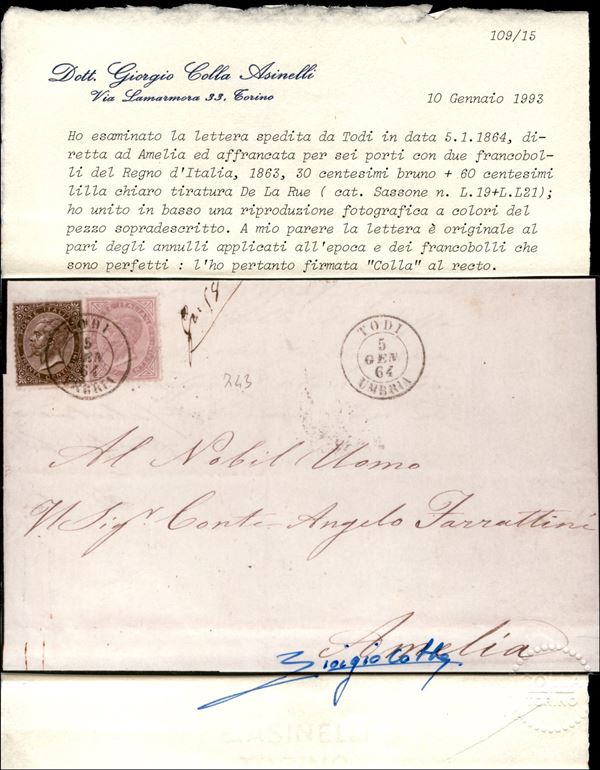 109/15
Dott. Giorgio Colla Asinelli
Via Lamarmora 33, Torino
10 Gennaio 1993
Ho esaminato la lettera spedita da Todi in data 5.1.1864, di-
retta ad Amelia ed affrancata per sei porti con due francobol-
li del Regno d'Italia, 1863, 30 centesimi bruno + 60 centesimi
lilla chiaro tiratura De La Rue ( cat. Sassone n. L.19+L.L21);
ho unito in basso una riproduzione fotografica a colori del
pezzo sopradescritto. A mio parere la lettera è originale al
pari degli annulli applicati all'epoca e dei francobolli che
sono perfetti : l'ho pertanto firmata "Colla" al recto.
TODI
5
GEN
64
UMBRIA
TODI
5
GEN
64
UMBRIA
243
Al Nobil Uomo
Il Sigr. Conte Angelo Farrattini
Amelia
Giorgio Colla
TORINO
ASINELLI